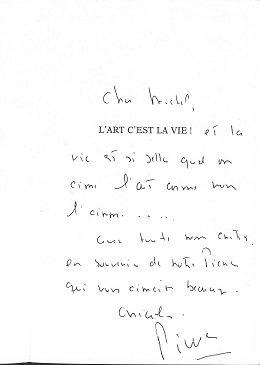 Cher Michel,
L'ART C'EST LA VIE! et la
vie est si belle quand on
aime l'art comme nous
l'aimons.....
Avec toute mon amitié,
en souvenir de notre Pierre
qui vous aimait beaucoup.